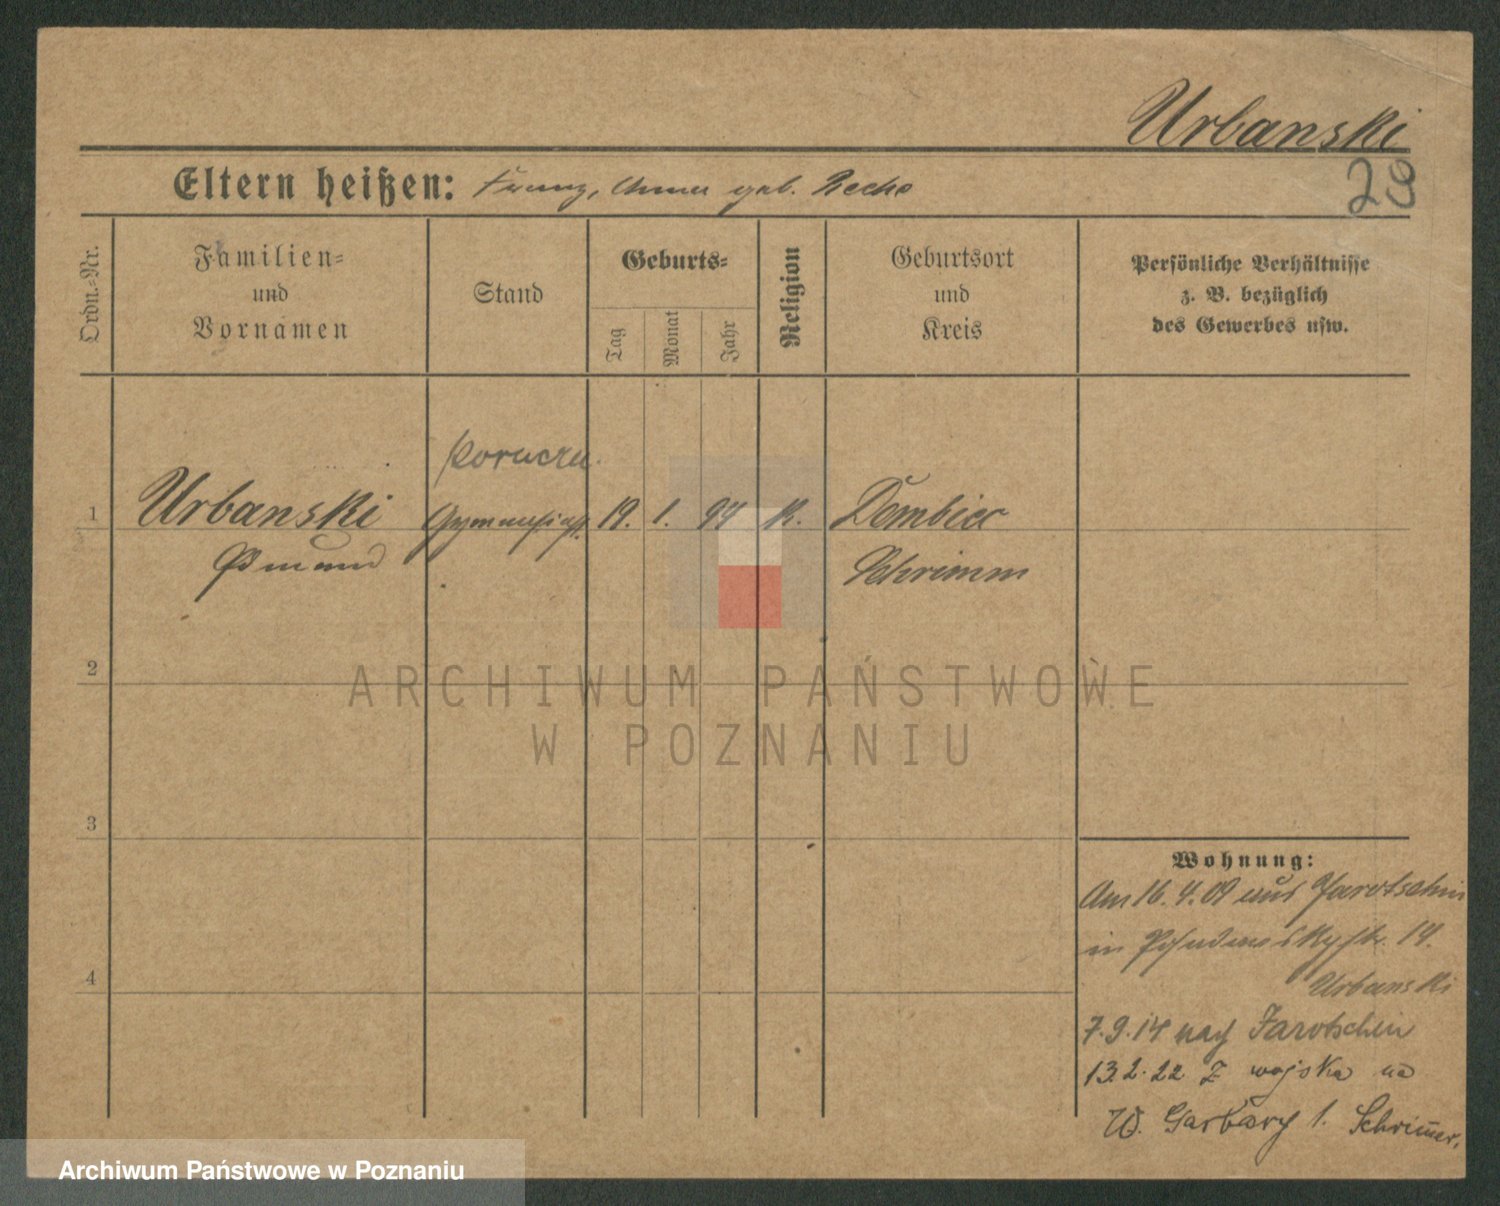 Urbanski
Eltern heißen: Franz, Anna geb. Recho
29
Ordn.-Nr.
Familien-
und
Vornamen
Stand
Geburts-
Tag
Monat
Jahr
Religion
Geburtsort
und
Kreis
Persönliche Verhältnisse
z. B. bezüglich
des Gewerbes usw.
Poruczn.
1 Urbanski Gymnasiast. 19. 1. 94 K. Dembiec
Edmund Schrimm
2
3
4
Wohnung:
Am 16.4.09 aus Jarotschin
in 14.
Urbanski
7.9.14 nach Jarotschin
13.2.22 Z wojska na
W. Garbary 1. Schrimmer.
ARCHIWUM PAŃSTWOWE
W POZNANIU
Archiwum Państwowe w Poznaniu